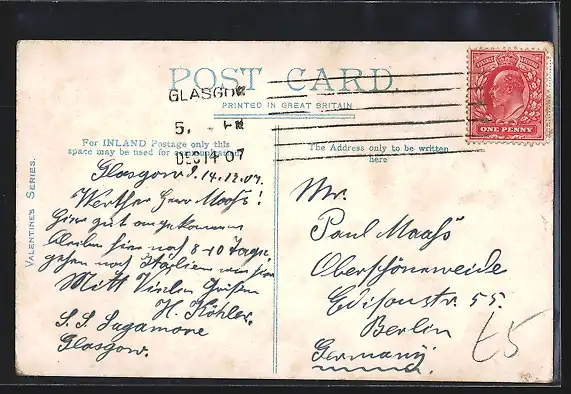 POST CARD.
PRINTED IN GREAT BRITAIN.
GLASGOW
5.
DEC 14 07
ONE PENNY
For INLAND Postage only this
space may be used for communication
The Address only to be written
here
VALENTINE'S SERIES.
Glasgow d. 14.12.07.
Werther Herr Maaß!
Hier gut angekommen
bleiben hier noch 8-10 Tage
gehen nach Italien von hier
Mitt Vielen Grüßen
H. Köhler.
S. S. Sagamore
Glasgow.
Mr.
Paul Maaß
Oberschöneweide
Edisonstr. 55.
Berlin
Germany.